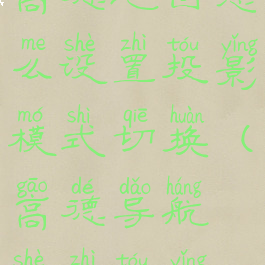 me shè zhì tóu yǐng
么设置投影
mó shì qiē huàn
模式切换（
gāo dé dǎo háng
高德导航
shè zhì tóu yǐng